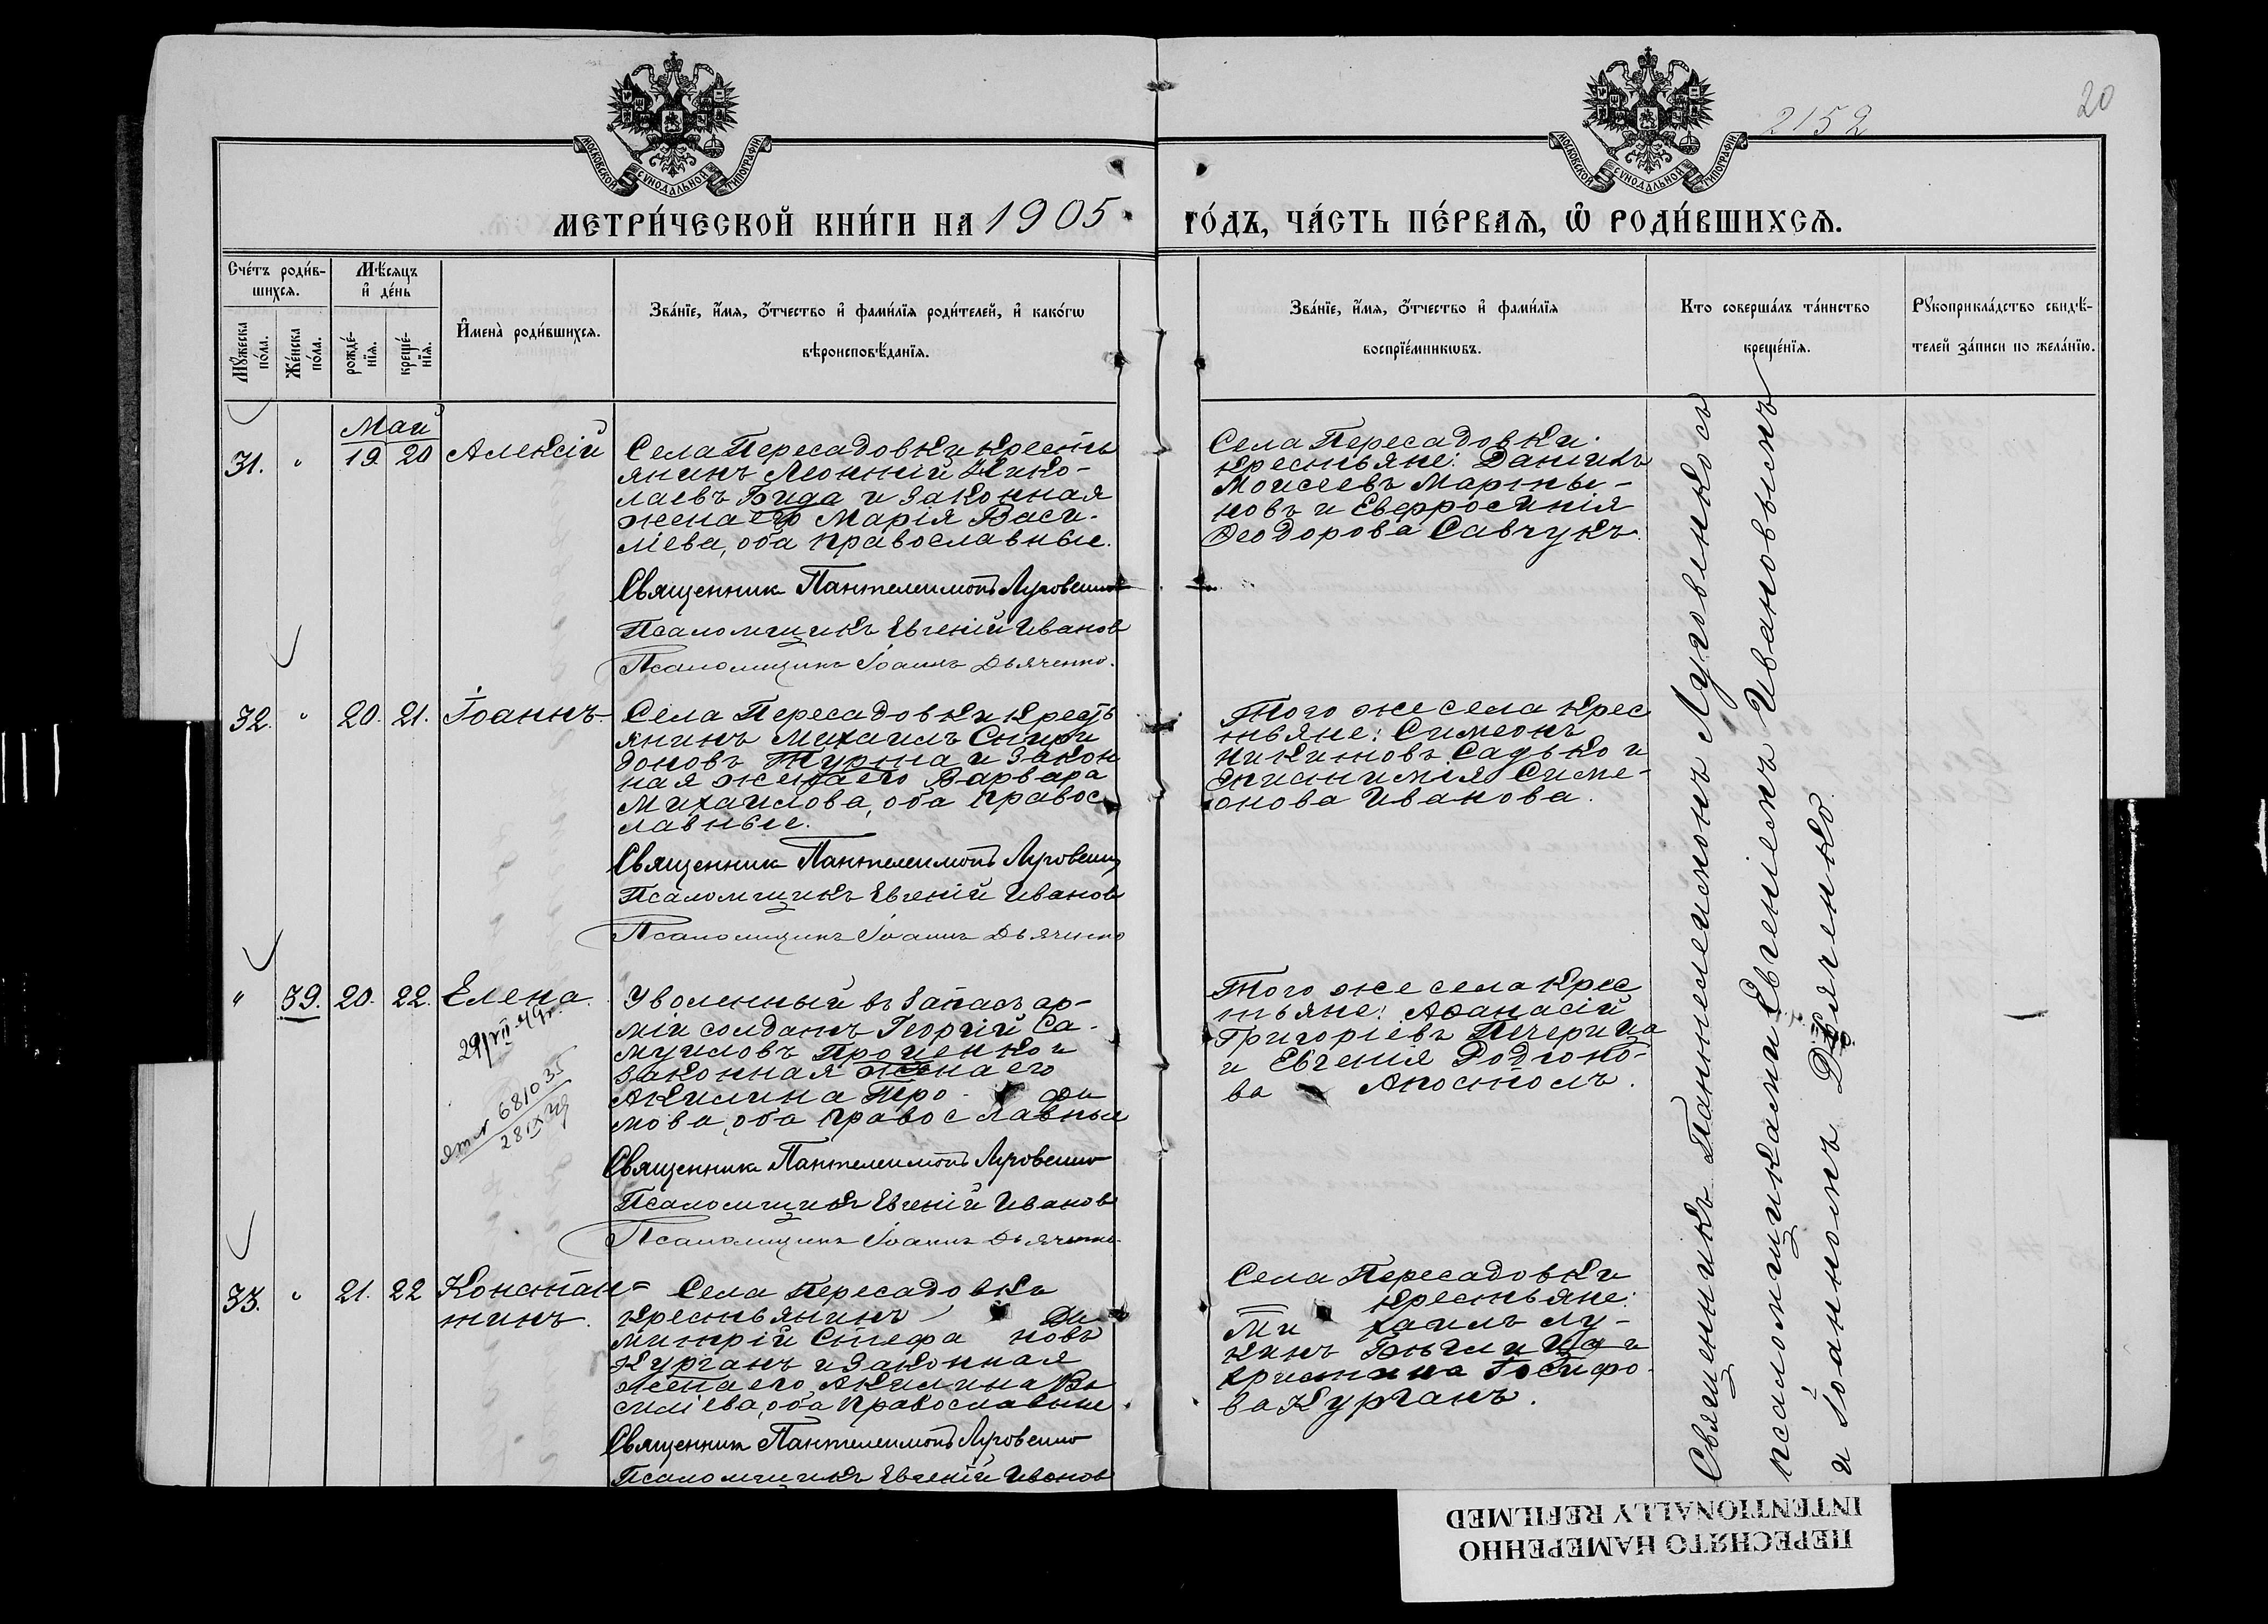 2152
20
МОСКОВСКОЙ СѴНОДАЛЬНОЙ ТИПОГРАФІИ
МОСКОВСКОЙ СѴНОДАЛЬНОЙ ТИПОГРАФІИ
МЕТРИ́ЧЕСКОЙ КНИ́ГИ НА 1905
ГО́ДЪ, ЧА́СТЬ ПЕ́РВАѦ, Ѽ РОДИ́ВШИХСѦ.
Сче́тъ роди́в-
шихсѧ.
Мꙋ́жеска по́ла.
Же́нска по́ла.
Мѣ́сяцъ
и҆ де́нь
рожде́-
нїѧ.
креще́-
нїѧ.
И҆мена̀ роди́вшихсѧ.
Зва́нїе, и҆́мѧ, о҆́тчество и҆ фами́лїѧ роди́телей, и҆ како́гѡ
вѣроисповѣ́данїѧ.
Зва́нїе, и҆́мѧ, о҆́тчество и҆ фами́лїѧ
воспрїе́мникѡвъ.
Кто соверша́лъ та́инство
креще́нїѧ.
Рꙋкоприкла́дство свидѣ́-
телей за́писи по жела́нїю.
Май
31. " 19 20 Алексій
Села Пересадовки кресть
янинъ Леонтій Нико-
лаевъ Бида и законная
жена его Марія Васи-
ліева, оба православные.
Священник Пантелеимонъ Луговенко
Псаломщикъ Евгеній Иванов
Псаломщикъ Іоаннъ Дьяченко.
Села Пересадовки
крестьяне: Даніилъ
Моисеевъ Марты-
новъ и Евфросинія
Ѳеодорова Савчукъ.
32. " 20. 21. Іоаннъ
Села Пересадовки кресть
янинъ Михаилъ Спири
доновъ Турта и закон
ная жена его Варвара
Михаилова, оба правос
лавные.
Священник Пантелеимонъ Луговенко
Псаломщикъ Евгеній Иванов
Псаломщикъ Іоаннъ Дьяченко
Того же села крес
тьяне: Симеонъ
Никитовъ Садько и
Епистимія Симе-
онова Иванова.
" 39. 20. 22. Елена.
29/VII-49г.
681035
28 IX 49
Уволенный въ запасъ ар-
міи солдатъ Георгій Са-
муиловъ Проценко и
законная жена его
Акилина Тро- фи
мова, оба православные
Священник Пантелеимонъ Луговенко
Псаломщикъ Евгеній Иванов
Псаломщикъ Іоаннъ Дьяченко.
Того же села крес
тьяне: Аѳанасій
Григоріевъ Печерица
и Евгенія Родіоно-
ва Апостолъ.
33. " 21. 22 Констан=
тинъ.
Села Пересадовки
крестьянинъ Ди
митрій Стефа новъ
Курганъ и законная
жена его Акилина Ва
силіева, оба православные
Священник Пантелеимонъ Луговенко
Псаломщикъ Евгеній Иванов
Села Пересадовки
крестьяне:
Ми хаилъ Лу-
кинъ и
Христина Іосифо-
ва Курганъ.
Священникъ Пантелеимонъ Луговенко съ
псаломщиками Евгеніемъ Ивановымъ
и Іоанномъ Дьяченко.
ПЕРЕСНЯТО НАМЕРЕННО
INTENTIONALLY REFILMED